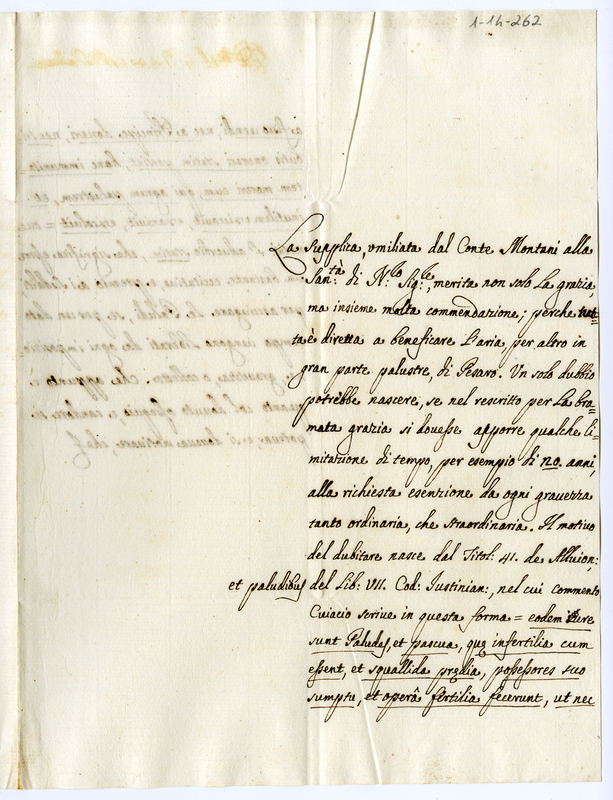 1-14-262
La Supplica, umiliata dal Conte Montani alla
San:tà di N:ro Sig:re, merita non solo la grazia,
ma insieme molta commendazione; perche tut=
ta è diretta a beneficare l'aria, per altro in
gran parte palustre, di Pesaro. Un solo dubbio
potrebbe nascere, se nel rescritto per la bra=
mata grazia si dovesse apporre qualche li=
mitazione di tempo, per esempio di 20. anni,
alla richiesta esenzione da ogni gravezza
tanto ordinaria, che straordinaria. Il motivo
del dubitare nasce dal Titol: 41. de Alluion:
et paludibus del Lib: VII. Cod: Iustinian:, nel cui commento
Cuiacio scrive in questa forma = eodem iure
sunt Paludes, et pascua, quę infertilia cum
essent, et squallida prędia, possessores suo
sumptu, et operâ fertilia fecerunt, ut nec